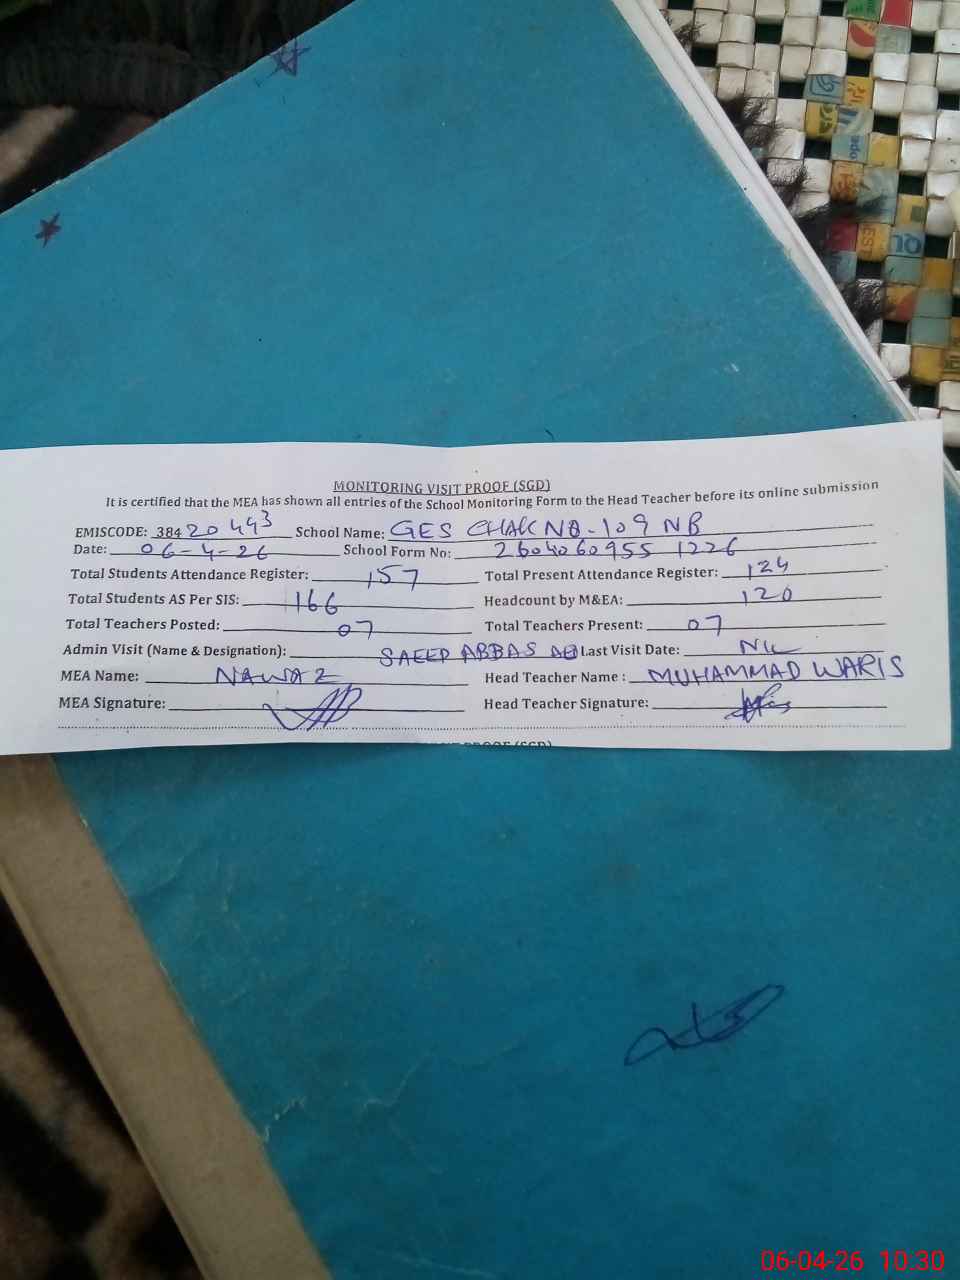 MONITORING VISIT PROOF (SGD)
It is certified that the MEA has shown all entries of the School Monitoring Form to the Head Teacher before its online submission
EMISCODE: 38420443 School Name: GES CHAK NO-109 NB
Date: 06-4-26 School Form No: 2604060955 1226
Total Students Attendance Register: 157 Total Present Attendance Register: 124
Total Students AS Per SIS: 166 Headcount by M&EA: 120
Total Teachers Posted: 07 Total Teachers Present: 07
Admin Visit (Name & Designation): SAEED ABBAS Last Visit Date: NIL
MEA Name: NAWAZ Head Teacher Name : MUHAMMAD WARIS
MEA Signature: Head Teacher Signature:
PROOF (SGD)
06-04-26 10:30